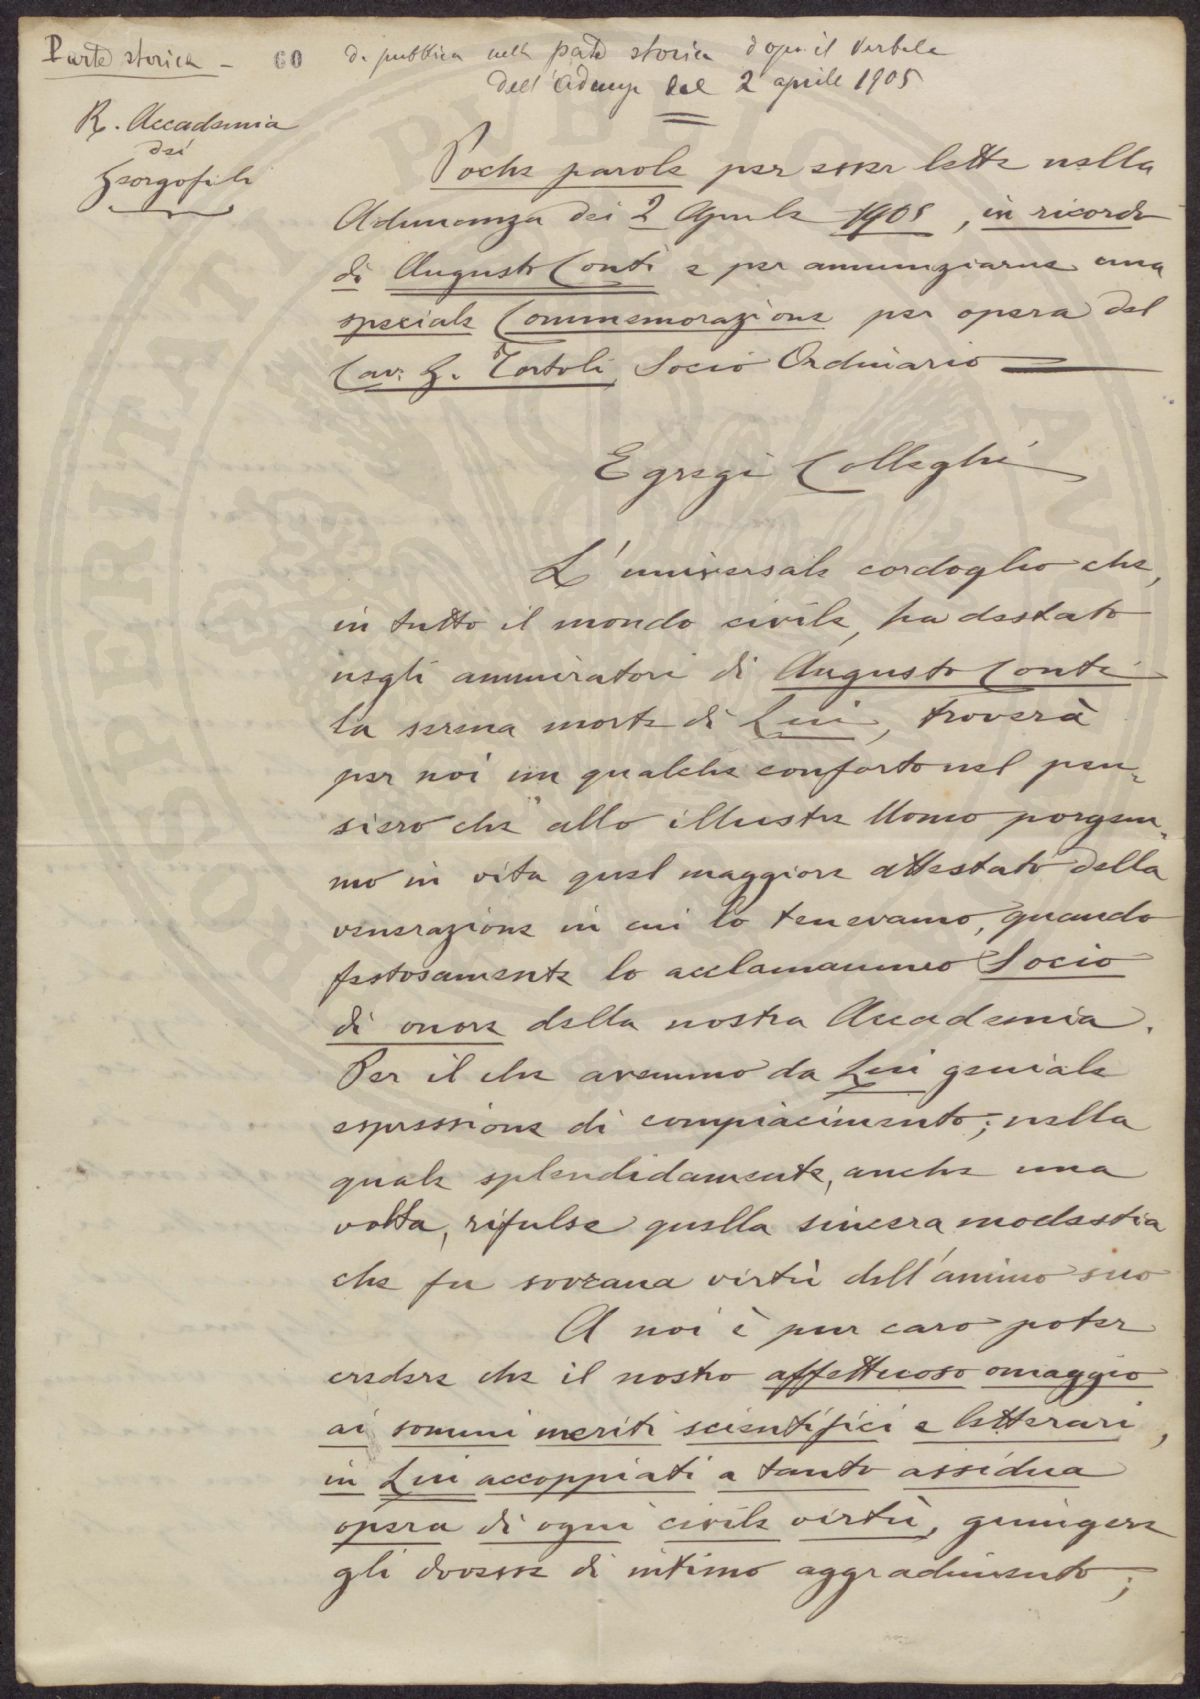 Parte storica - 60 da pubblica nella parte storica dopo il Verbale
dell'Adunza del 2 aprile 1905
R. Accademia
dei
Georgofili
Poche parole per esser lette nella
Adunanza dei 2 Aprile 1905, in ricordo
di Augusto Conti e per annunziarne una
speciale Commemorazione per opera del
Cav: G. Tortoli, Socio Ordinario
Egregi Colleghi
L'universale cordoglio che,
in tutto il mondo civile, ha destato
negli ammiratori di Augusto Conti
la serena morte di Lui, troverà
per noi un qualche conforto nel pen-
siero che allo illustre Uomo porgem-
mo in vita quel maggiore attestato della
venerazione in cui lo tenevamo, quando
festosamente lo acclamammo Socio
di onore della nostra Accademia.
Per il che avemmo da Lui geniale
espressione di compiacimento; nella
quale splendidamente, anche una
volta, rifulse quella sincera modestia
che fu sovrana virtù dell'animo suo
A noi è pur caro poter
credere che il nostro affettuoso omaggio
ai sommi meriti scientifici e letterari,
in Lui accoppiati a tanto assidua
opera di ogni civile virtù, giungere
gli dovesse di intimo aggradimento;
PROSPERITATI PUBLICAE AV